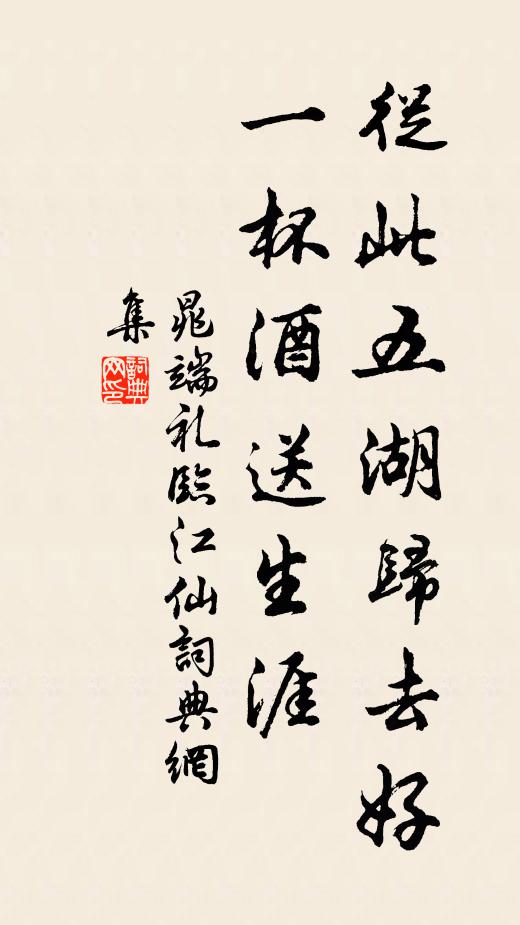 從此五湖歸去好
一杯酒送生涯
晁端礼臨江仙詞典網
集
詞典
网印